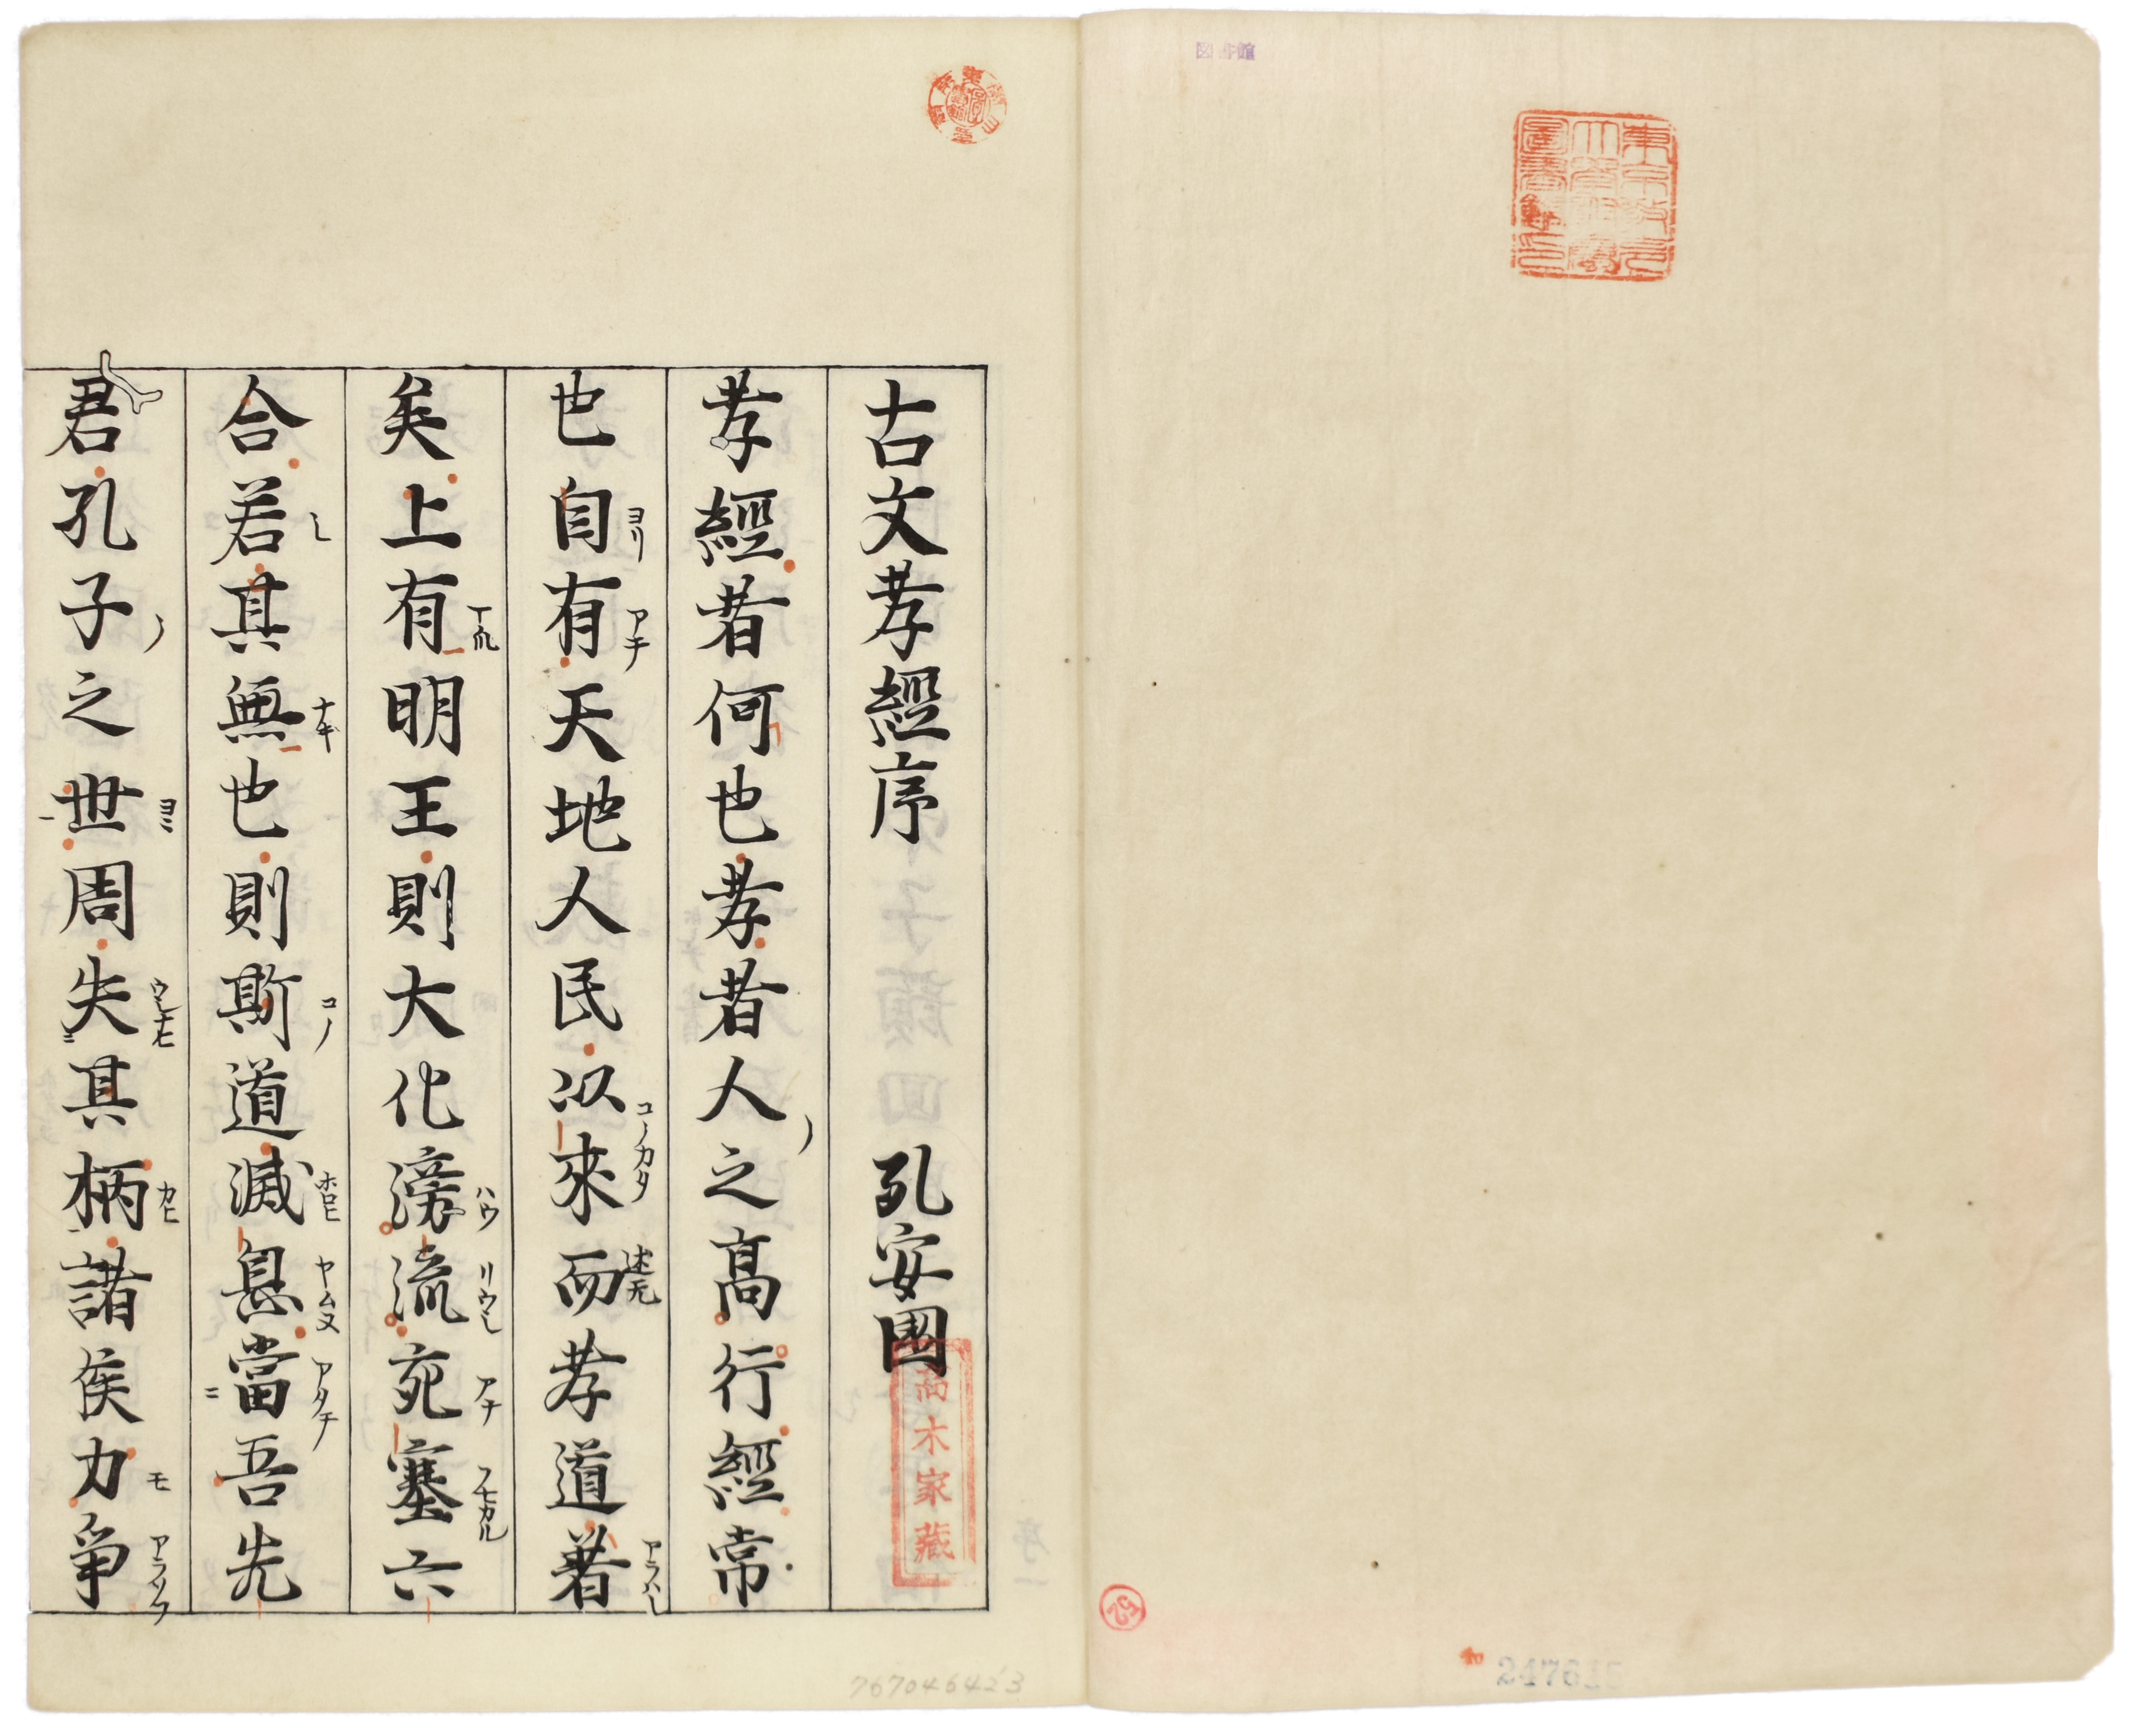 図書館
247615
古文孝經序 孔安國
高木家藏
孝經者何也孝者人之髙行經常
也自有天地人民以來而孝道著
矣上有明王則大化滂流充塞六
合若其無也則斯道滅息當吾先
君孔子之世周失其柄諸侯力爭
767046423